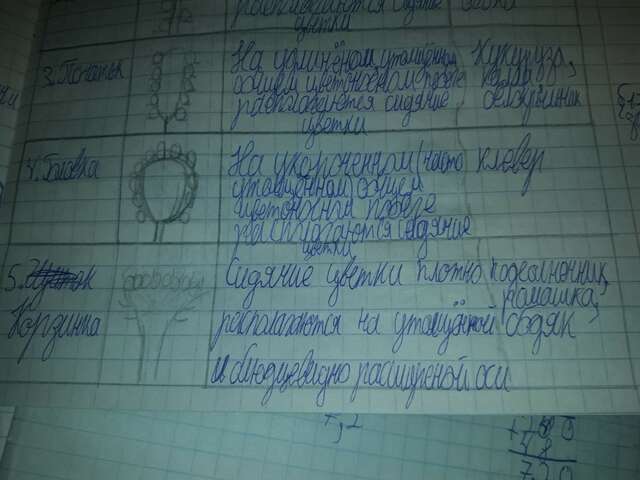 располагаются сидячие
цветки
3. Початок
На удлинённом утолщённом Кукуруза,
общем цветоносном побеге калла,
располагаются сидячие белокрыльник
цветки
4. Головка
На укороченном (часто клевер
утолщённом) общем
цветоносном побеге
располагаются сидячие
цветки
5.
Корзинка
Сидячие цветки плотно подсолнечник,
ромашка,
располагаются на утолщённой бодяк
и блюдцевидно расширеной оси
7,20